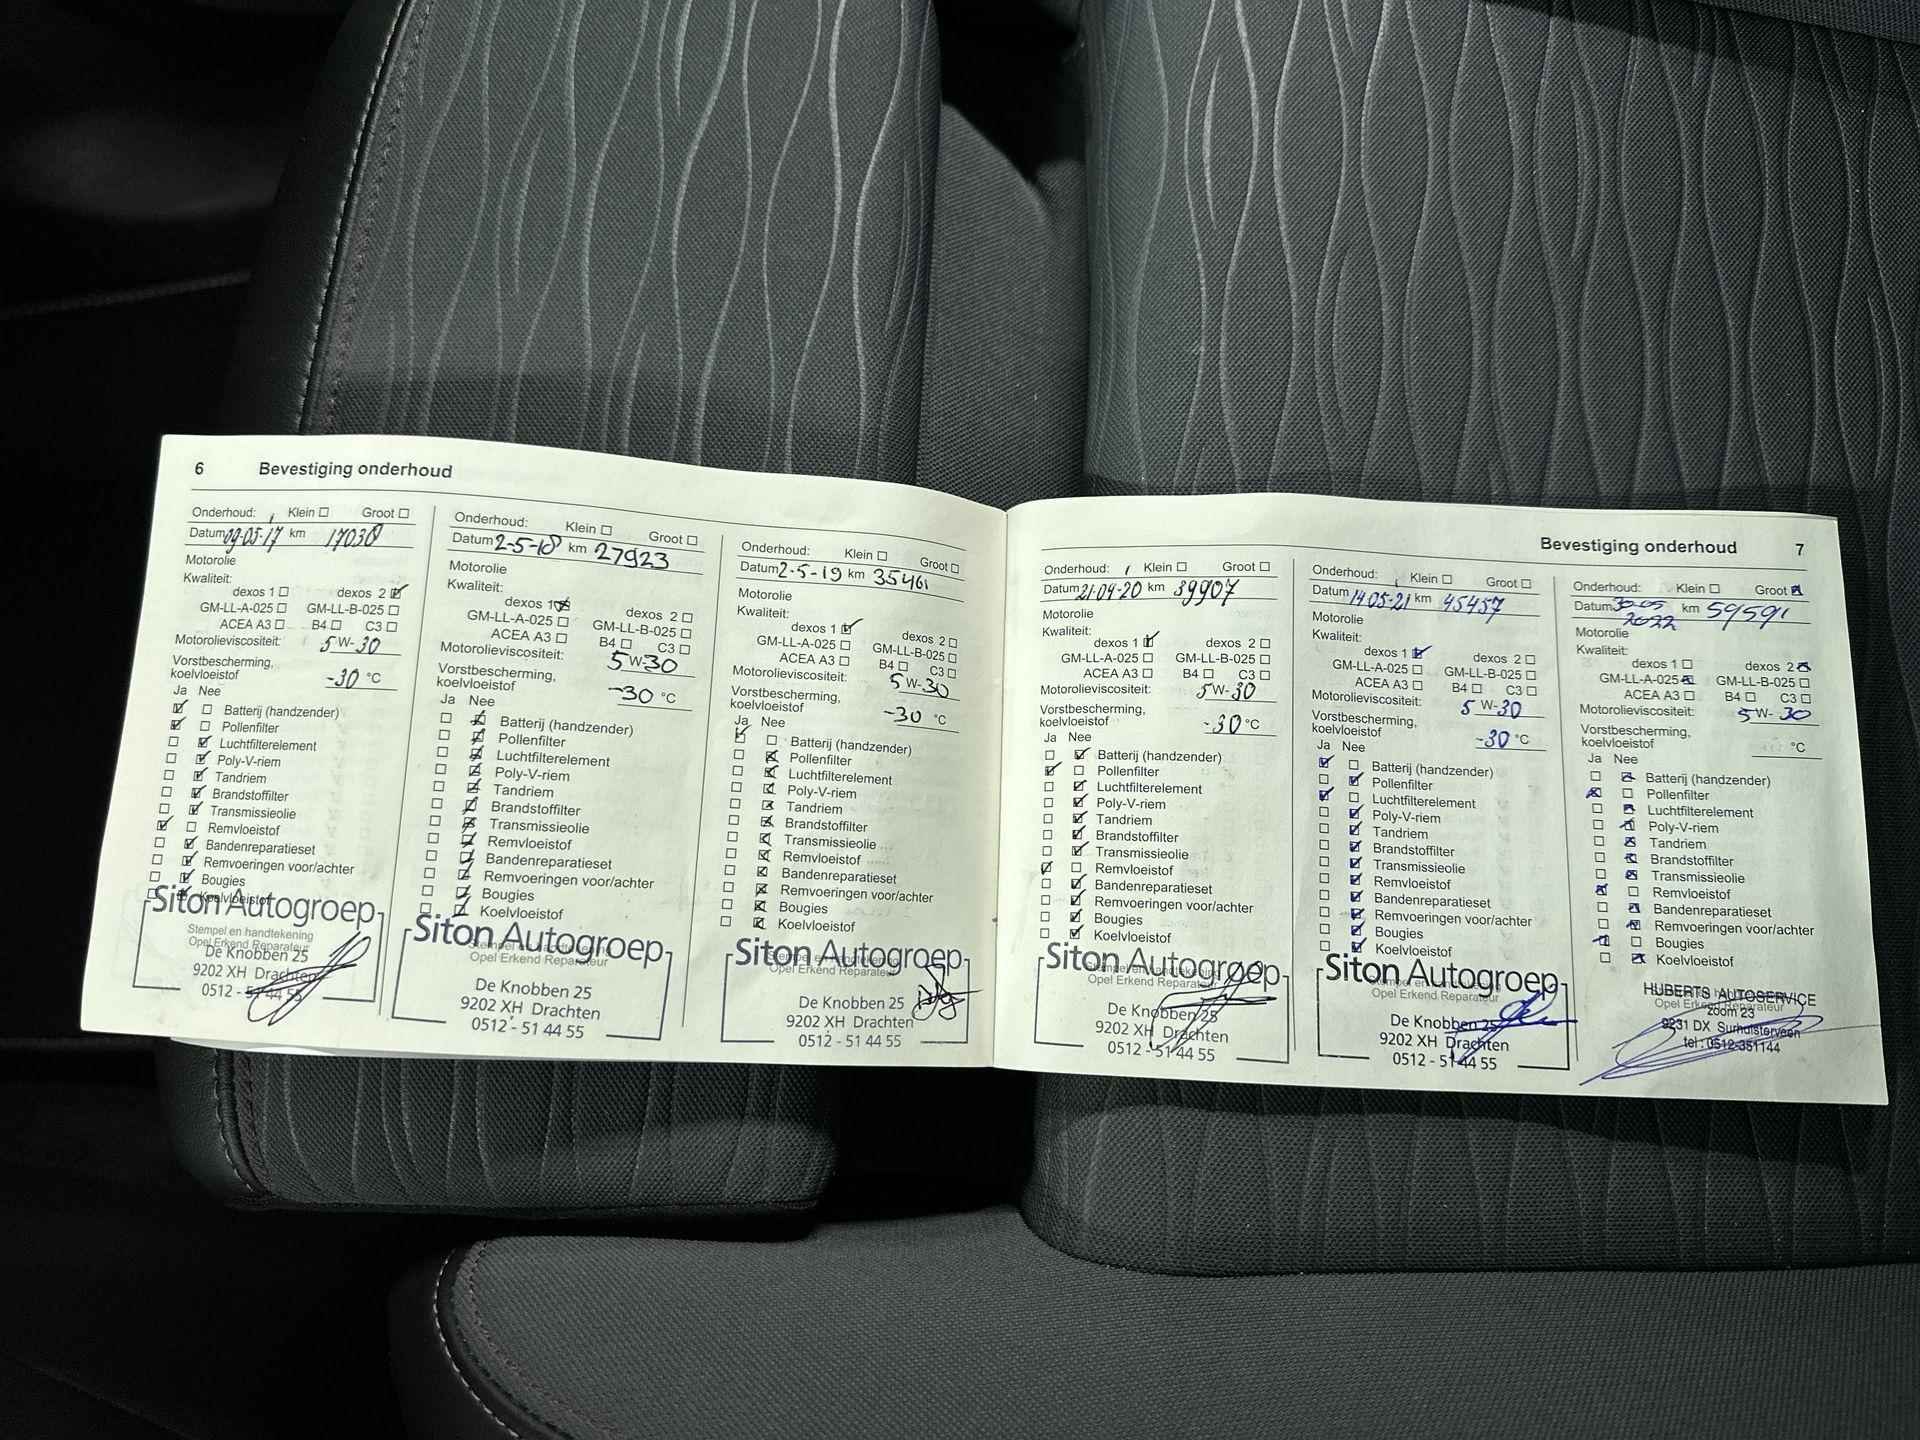 6 Bevestiging onderhoud
Onderhoud: Klein ☐ Groot ☐
Datum 09-05-17 km 17038
Motorolie
Kwaliteit:
dexos 1 ☐ dexos 2 ☑
GM-LL-A-025 ☐ GM-LL-B-025 ☐
ACEA A3 ☐ B4 ☐ C3 ☐
Motorolieviscositeit: 5 W- 30
Vorstbescherming,
koelvloeistof -30 °C
Ja Nee
☑ ☐ Batterij (handzender)
☑ ☐ Pollenfilter
☐ ☑ Luchtfilterelement
☐ ☑ Poly-V-riem
☐ ☑ Tandriem
☐ ☑ Brandstoffilter
☐ ☑ Transmissieolie
☑ ☐ Remvloeistof
☐ ☑ Bandenreparatieset
☐ ☑ Remvoeringen voor/achter
☐ ☑ Bougies
☐ ☑ Koelvloeistof
Siton Autogroep
Stempel en handtekening
Opel Erkend Reparateur
De Knobben 25
9202 XH Drachten
0512 - 51 44 55
Onderhoud: Klein ☐ Groot ☐
Datum 2-5-18 km 27923
Motorolie
Kwaliteit:
dexos 1 ☑ dexos 2 ☐
GM-LL-A-025 ☐ GM-LL-B-025 ☐
ACEA A3 ☐ B4 ☐ C3 ☐
Motorolieviscositeit: 5 W-30
Vorstbescherming,
koelvloeistof -30 °C
Ja Nee
☐ ☑ Batterij (handzender)
☐ ☑ Pollenfilter
☐ ☑ Luchtfilterelement
☐ ☑ Poly-V-riem
☐ ☑ Tandriem
☐ ☑ Brandstoffilter
☐ ☑ Transmissieolie
☐ ☑ Remvloeistof
☐ ☑ Bandenreparatieset
☐ ☑ Remvoeringen voor/achter
☐ ☑ Bougies
☐ ☑ Koelvloeistof
Siton Autogroep
Stempel en handtekening
Opel Erkend Reparateur
De Knobben 25
9202 XH Drachten
0512 - 51 44 55
Onderhoud: Klein ☐ Groot ☐
Datum 2-5-19 km 35461
Motorolie
Kwaliteit:
dexos 1 ☑ dexos 2 ☐
GM-LL-A-025 ☐ GM-LL-B-025 ☐
ACEA A3 ☐ B4 ☐ C3 ☐
Motorolieviscositeit: 5 W-30
Vorstbescherming,
koelvloeistof -30 °C
Ja Nee
☑ ☐ Batterij (handzender)
☐ ☑ Pollenfilter
☐ ☑ Luchtfilterelement
☐ ☑ Poly-V-riem
☐ ☑ Tandriem
☐ ☑ Brandstoffilter
☐ ☑ Transmissieolie
☐ ☑ Remvloeistof
☐ ☑ Bandenreparatieset
☐ ☑ Remvoeringen voor/achter
☐ ☑ Bougies
☐ ☑ Koelvloeistof
Siton Autogroep
Stempel en handtekening
Opel Erkend Reparateur
De Knobben 25
9202 XH Drachten
0512 - 51 44 55
Bevestiging onderhoud 7
Onderhoud: Klein ☐ Groot ☐
Datum 21-04-20 km 39907
Motorolie
Kwaliteit:
dexos 1 ☑ dexos 2 ☐
GM-LL-A-025 ☐ GM-LL-B-025 ☐
ACEA A3 ☐ B4 ☐ C3 ☐
Motorolieviscositeit: 5 W-30
Vorstbescherming,
koelvloeistof -30 °C
Ja Nee
☐ ☑ Batterij (handzender)
☑ ☐ Pollenfilter
☐ ☑ Luchtfilterelement
☐ ☑ Poly-V-riem
☐ ☑ Tandriem
☐ ☑ Brandstoffilter
☐ ☑ Transmissieolie
☑ ☐ Remvloeistof
☐ ☑ Bandenreparatieset
☐ ☑ Remvoeringen voor/achter
☐ ☑ Bougies
☐ ☑ Koelvloeistof
Siton Autogroep
Stempel en handtekening
Opel Erkend Reparateur
De Knobben 25
9202 XH Drachten
0512 - 51 44 55
Onderhoud: Klein ☐ Groot ☐
Datum 14-05-21 km 45457
Motorolie
Kwaliteit:
dexos 1 ☑ dexos 2 ☐
GM-LL-A-025 ☐ GM-LL-B-025 ☐
ACEA A3 ☐ B4 ☐ C3 ☐
Motorolieviscositeit: 5 W-30
Vorstbescherming,
koelvloeistof -30 °C
Ja Nee
☑ ☐ Batterij (handzender)
☐ ☑ Pollenfilter
☑ ☐ Luchtfilterelement
☐ ☑ Poly-V-riem
☐ ☑ Tandriem
☐ ☑ Brandstoffilter
☐ ☑ Transmissieolie
☐ ☑ Remvloeistof
☐ ☑ Bandenreparatieset
☐ ☑ Remvoeringen voor/achter
☐ ☑ Bougies
☐ ☑ Koelvloeistof
Siton Autogroep
Stempel en handtekening
Opel Erkend Reparateur
De Knobben 25
9202 XH Drachten
0512 - 51 44 55
Onderhoud: Klein ☐ Groot ☑
Datum 30-05 km 59591
2022
Motorolie
Kwaliteit:
dexos 1 ☐ dexos 2 ☑
GM-LL-A-025 ☑ GM-LL-B-025 ☐
ACEA A3 ☐ B4 ☐ C3 ☐
Motorolieviscositeit: 5 W- 30
Vorstbescherming,
koelvloeistof °C
Ja Nee
☐ ☑ Batterij (handzender)
☑ ☐ Pollenfilter
☐ ☑ Luchtfilterelement
☐ ☑ Poly-V-riem
☐ ☑ Tandriem
☐ ☑ Brandstoffilter
☐ ☑ Transmissieolie
☑ ☐ Remvloeistof
☐ ☑ Bandenreparatieset
☐ ☑ Remvoeringen voor/achter
☑ ☐ Bougies
☐ ☑ Koelvloeistof
HUBERTS AUTOSERVICE
Opel Erkend Reparateur
zoom 23
9231 DX Surhuisterveen
tel : 0512-351144